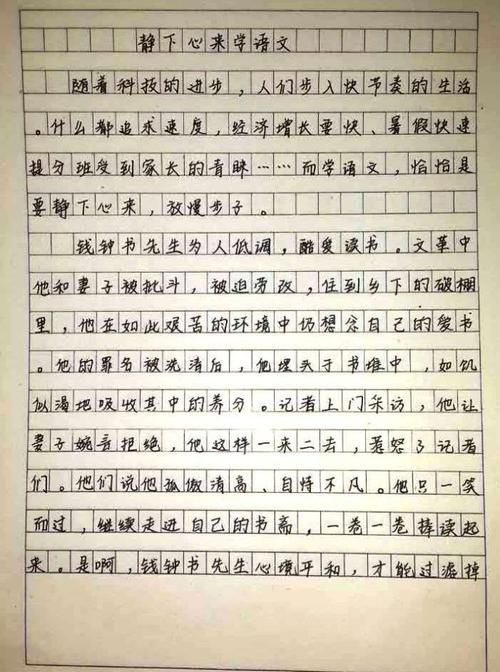 静下心来学语文
随着科技的进步，人们步入快节奏的生活
。什么都追求速度，经济增长要快、暑假快速
提分班受到家长的青睐……而学语文，恰恰是
要静下心来，放慢步子。
钱钟书先生为人低调，酷爱读书。文革中
他和妻子被批斗，被迫劳改，住到乡下的破棚
里，他在如此艰苦的环境中仍想念自己的爱书
。他的罪名被洗清后，他埋头于书堆中，如饥
似渴地吸收其中的养分。记者上门采访，他让
妻子婉言拒绝，他这样一来二去，惹怒了记者
们。他们说他孤傲清高、自恃不凡。他只一笑
而过，继续走进自己的书斋，一卷一卷捧读起
来。是啊，钱钟书先生心境平和，才能过滤掉